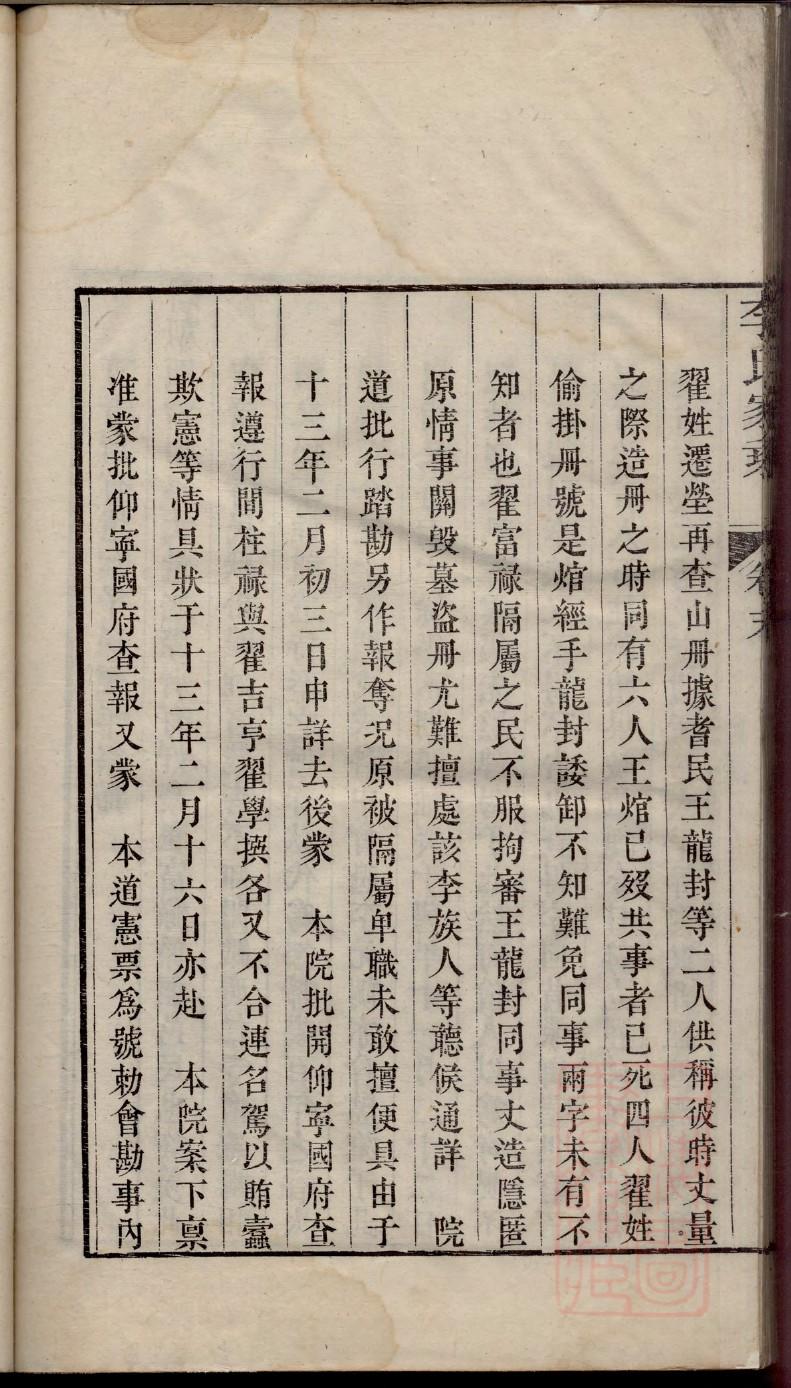 李氏家乘 卷末
翟姓遷塋再查山冊據耆民王龍封等二人供稱彼時丈量
之際造冊之時同有六人王㷄已歿共事者已死四人翟姓
偷掛冊號是㷄經手龍封諉卸不知難免同事兩字未有不
知者也翟富祿隔屬之民不服拘審王龍封同事丈造隱匿
原情事關毀墓盜冊尤難擅處該李族人等聽候通詳 院
道批行踏勘另作報奪况原被隔屬卑職未敢擅便具由于
十三年二月初三日申詳去後蒙 本院批開仰寧國府查
報遵行間柱祿與翟吉亨翟學撰各又不合連名駕以賄蠹
欺憲等情具狀于十三年二月十六日亦赴 本院案下稟
准蒙批仰寧國府查報又蒙 本道憲票爲號勅會勘事內